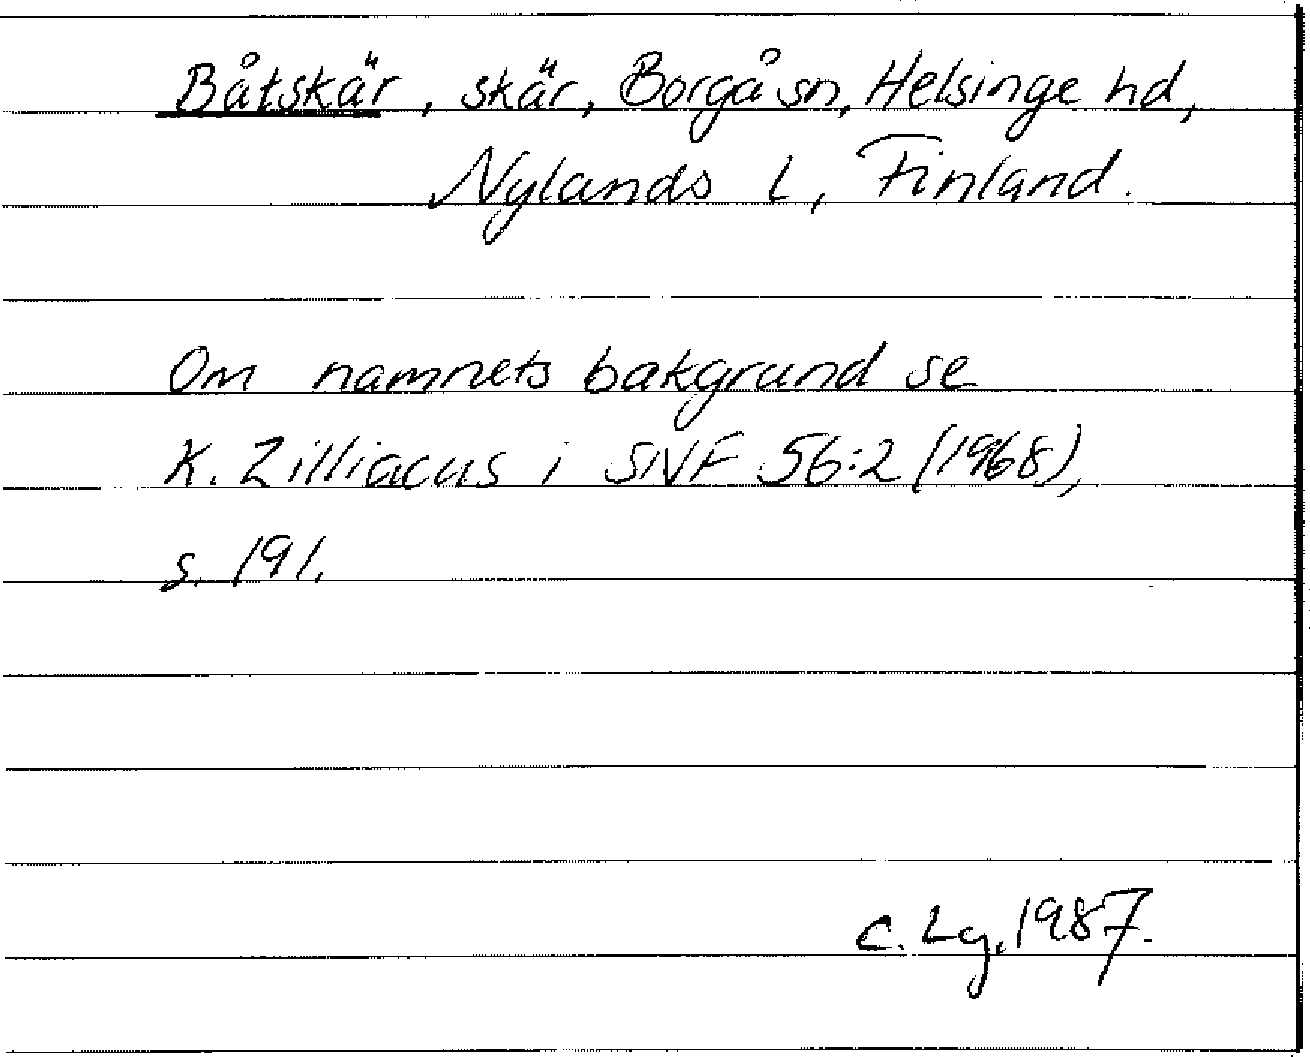 Båtskär, skär, Borgå sn, Helsinge hd,
Nylands l, Finland.
Om namnets bakgrund se
K. Zilliacus i SNF 56:2 (1968),
s. 191.
C. Lg. 1987.